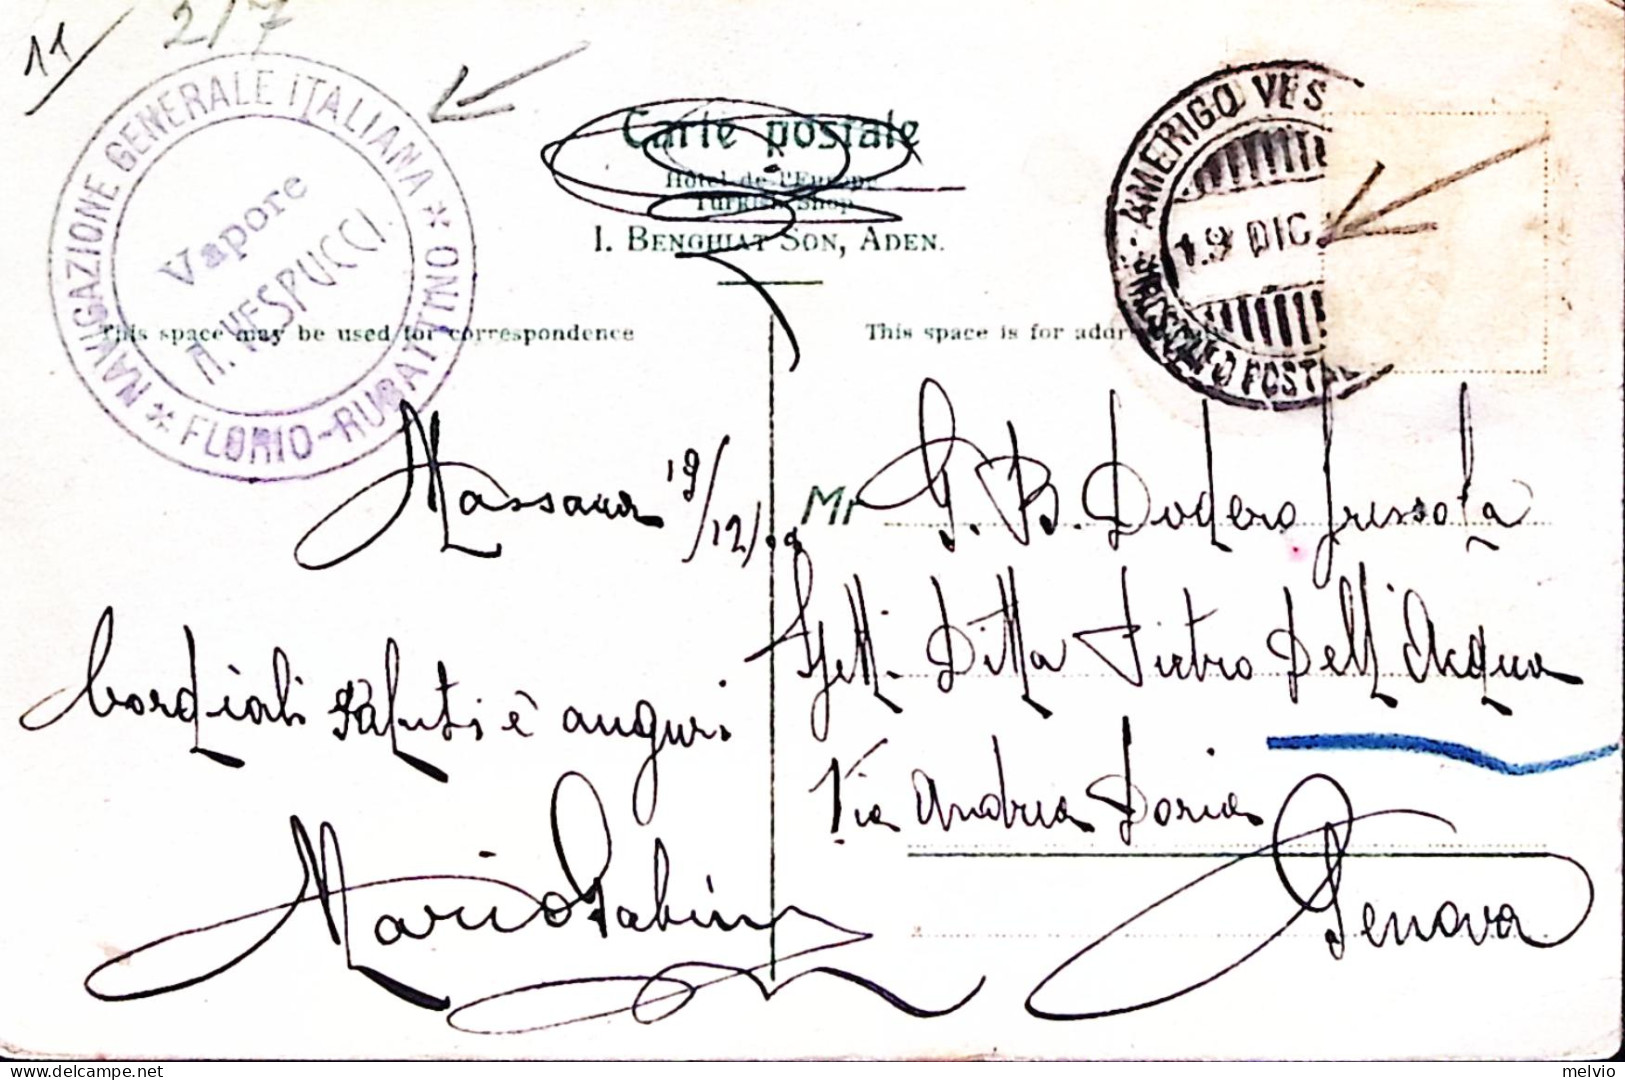 11/
217
NAVIGAZIONE GENERALE ITALIANA * FLORIO-RUBATTINO *
Vapore
A. VESPUCCI.
Carte postale
Hôtel de l'Europe
Turkish Shop
I. BENGHIAT SON, ADEN.
AMERIGO VES
19 DIC.
PIROSCAFO POSTALE
This space may be used for correspondence
This space is for address
Massaua 19/12/
Cordiali saluti e auguri
Mario
Mr G. B. Dodero
Ditta Pietro Dell'Acqua
Via Andrea Doria
Genova
melvio